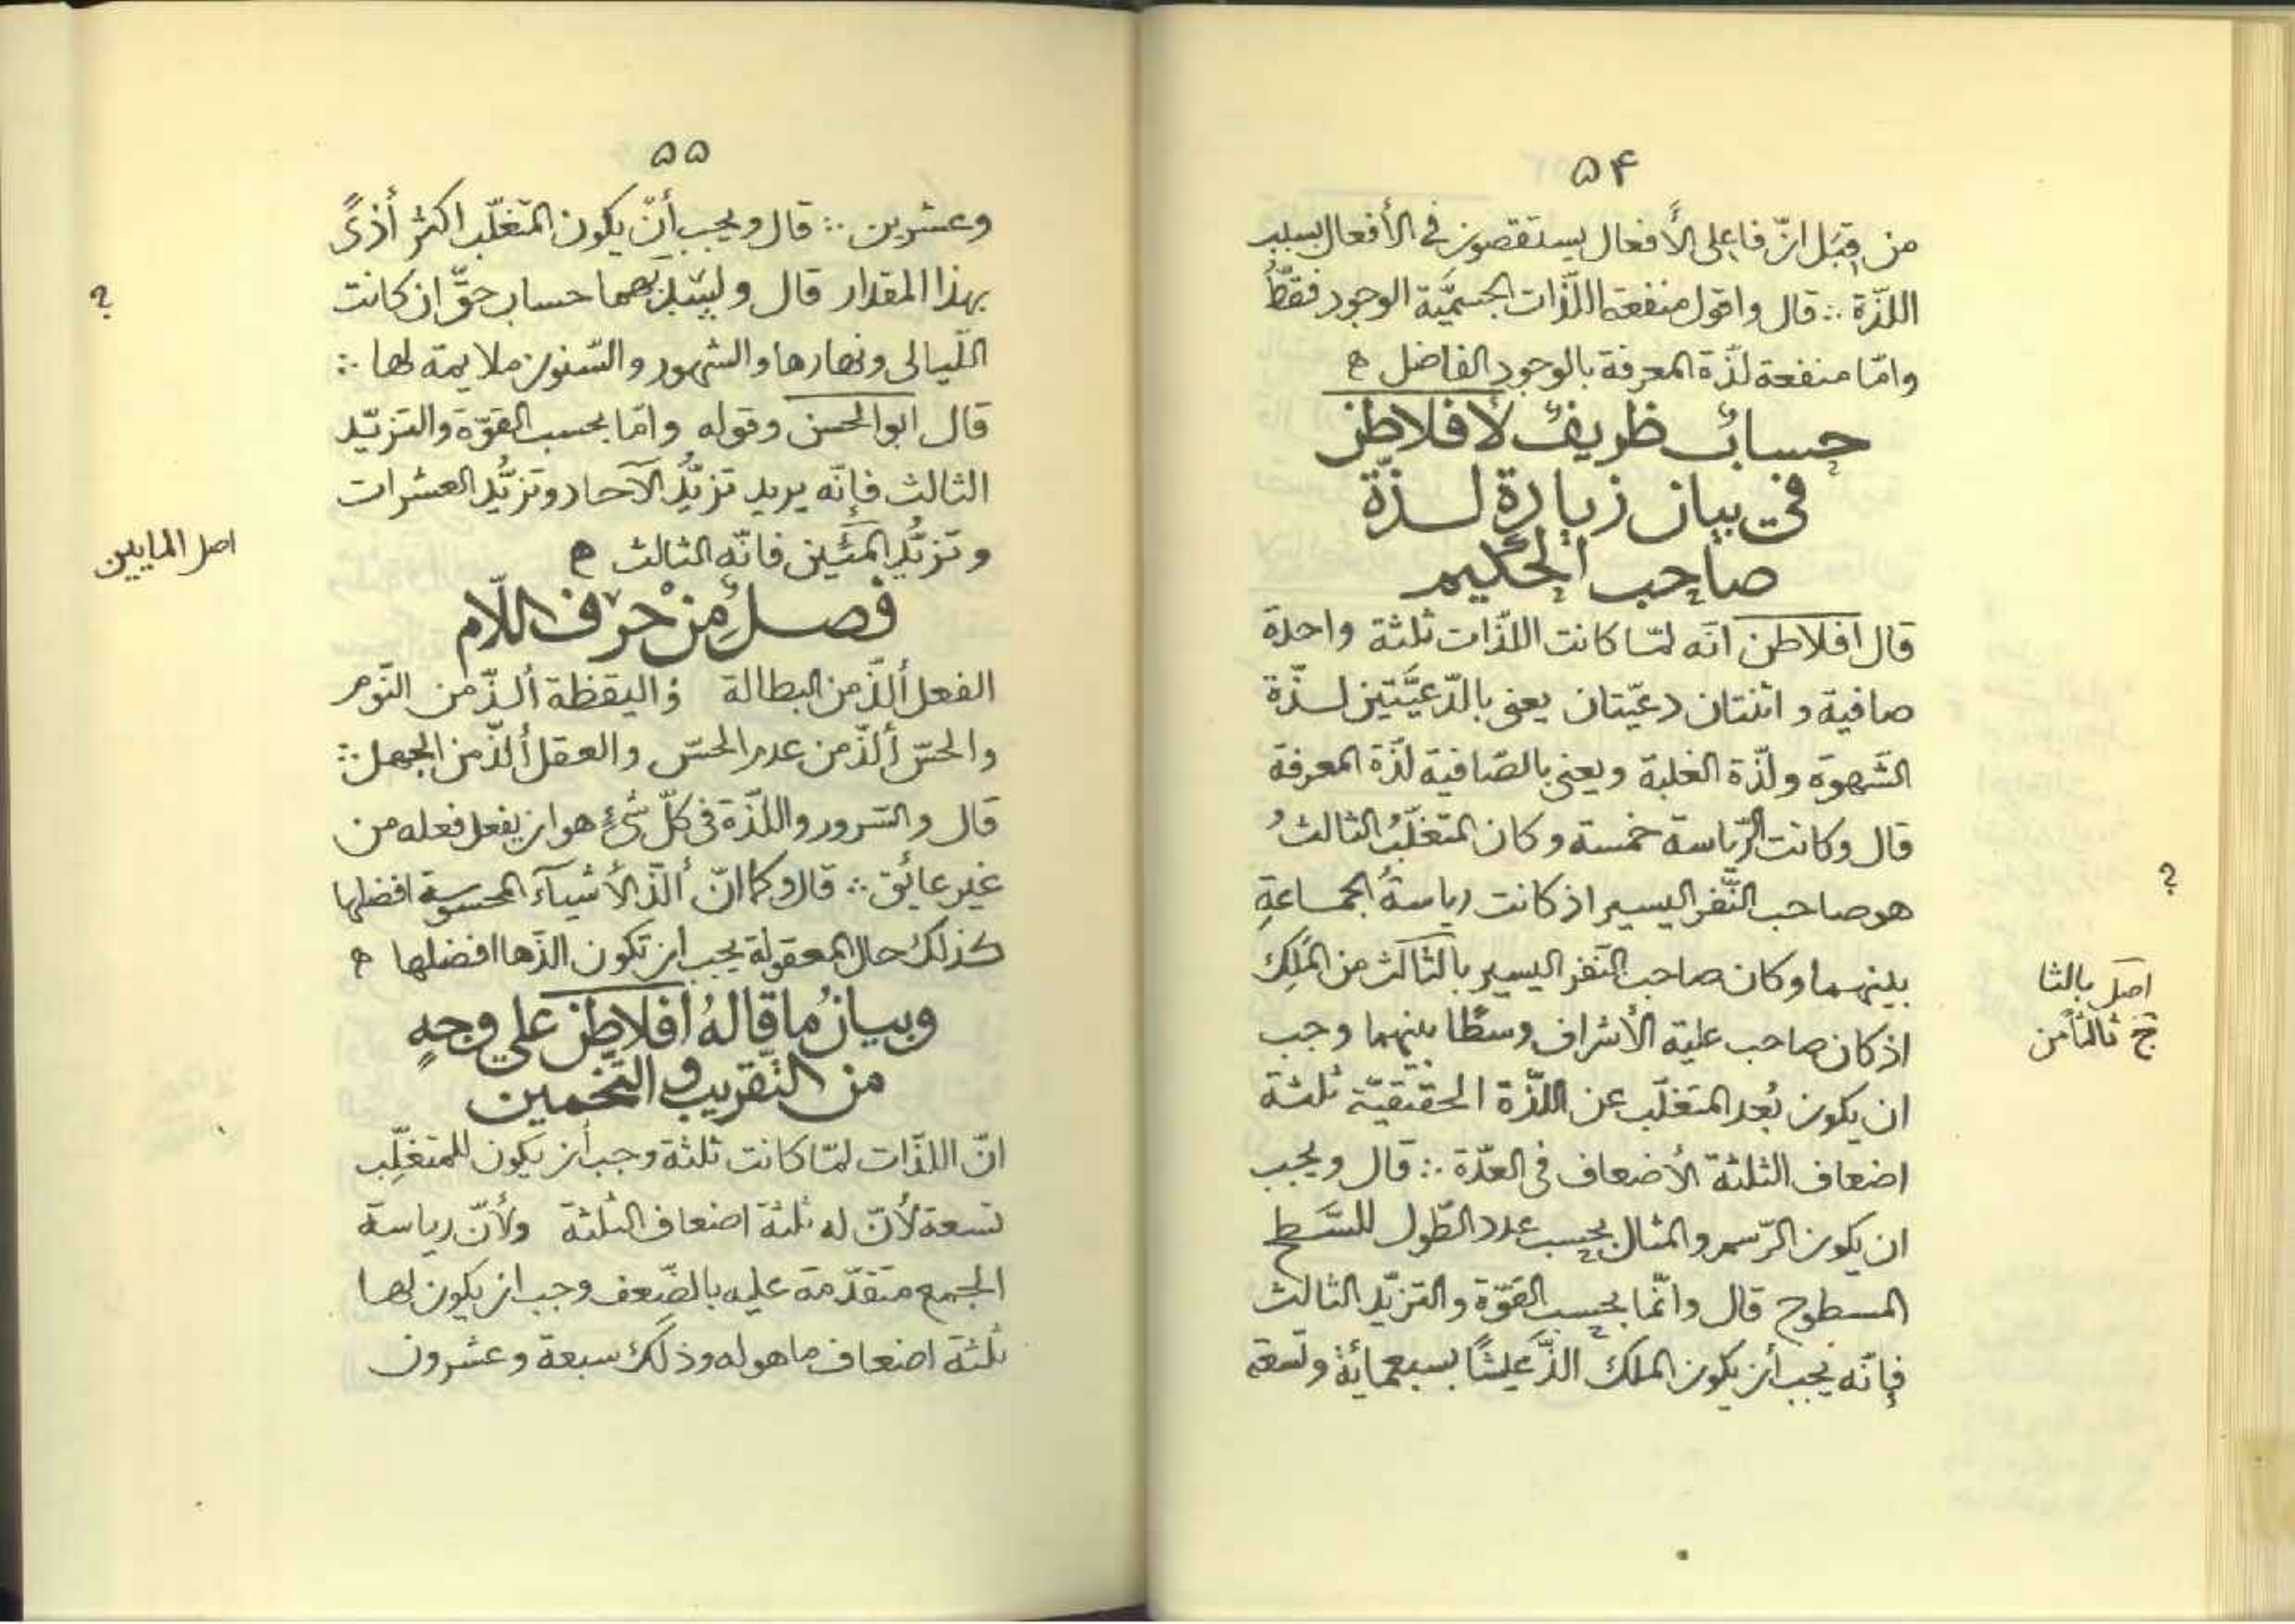 ۵۴
من قِبَل انّ فاعلى الأفعال يستقصون فى الأفعال بسبب
اللذّة ∴ قال واقول منفعة اللذّات الجسميَّة الوجود فقطُ
وامّا منفعة لذّة المعرفة بالوجود الفاضل ه
حسابٌ ظريفٌ لأفلاطن
فى بيان زيادة لذّة
صاحب الحكيم
قال افلاطن انّه لمّا كانت اللذّات ثلثة واحدة
صافية و اثنتان دعيّتان يعنى بالدّعيَّتين لذّة
الشّهوة ولذّة الغلبة ويعنى بالصّافية لذّة المعرفة
قال وكانت الرّياسة خمسة وكان المتغلّبُ الثالثُ
هو صاحب النّفر اليسير اذ كانت رياسةُ الجماعةِ
؟
بينهما وكان صاحب النّفر اليسير بالثالث من المَلِك
اصل بالثا
اذ كان صاحب علية الأشراف وسطًا بينهما وجب
ثالثاً من
ان يكون بُعد المتغلّب عن اللّذّة الحقيقيّة ثلثة
اضعاف الثلثة الأضعاف فى العدّة ∴ قال ويجب
ان يكون الرّسم والمثال بحسب عدد الطّول للسّطح
المسطوح قال وانّما بحسب القوّة والتزيّد الثالث
فإنّه يجب أن يكون الملك الذّ عيشًا بسبعمائة وتسعة
۵۵
وعشرين ∴ قال ويجب أن يكون المتغلّب اكثر أذىً
بهذا المقدار قال و حساب حقّ ان كانت
؟
اللّيالى ونهارها والشهور والسّنون ملايمة لها ∴
قال ابو الحسن وقوله وامّا بحسب القوّة والتزيّد
الثالث فإنّه يريد تزيُّد الآحاد وتزيُّد العشرات
وتزيُّد المئين فانّه الثالث ه
اصل المايين
فصلٌ من حرف اللّام
الفعل ألذّ من البطالة واليقظة ألذّ من النّوم
والحسّ ألذّ من عدم الحسّ والعقل ألذّ من الجهل ∴
قال والسّرور واللذّة فى كلّ شىءٍ هو ان يفعل فعله من
غير عائق ∴ قال وكما انّ ألذّ الأشياء المحسوسة افضلها
كذلك حال المعقولة يجب ان تكون الذّها افضلها ه
وبيانُ ما قاله افلاطن على وجهٍ
من التّقريب والتّخمين
انّ اللذّات لمّا كانت ثلثة وجب أن يكون للمتغلِّب
تسعة لأنّ له ثلثة اضعاف الثلثة ولأنّ رياسة
الجمع متقدّمة عليه بالضّعف وجب ان يكون لها
ثلثة اضعاف ما هو له وذلك سبعة وعشرون